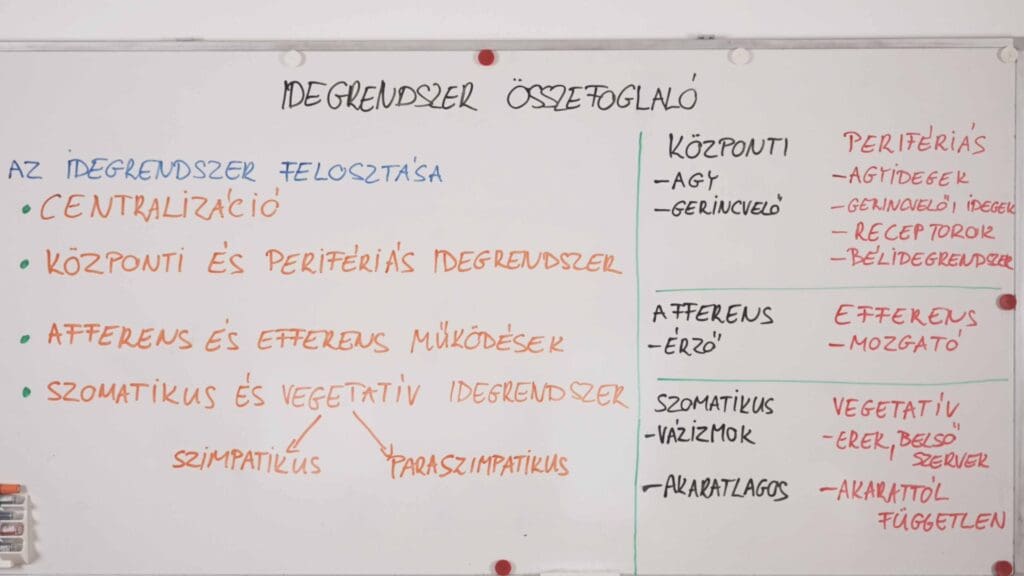 IDEGRENDSZER ÖSSZEFOGLALÓ
AZ IDEGRENDSZER FELOSZTÁSA
• CENTRALIZÁCIÓ
• KÖZPONTI ÉS PERIFÉRIÁS IDEGRENDSZER
• AFFERENS ÉS EFFERENS MŰKÖDÉSEK
• SZOMATIKUS ÉS VEGETATÍV IDEGRENDSZER
SZIMPATIKUS
PARASZIMPATIKUS
KÖZPONTI
- AGY
- GERINCVELŐ
PERIFÉRIÁS
- AGYIDEGEK
- GERINCVELŐI IDEGEK
- RECEPTOROK
- BÉLIDEGRENDSZER
AFFERENS
- ÉRZŐ
EFFERENS
- MOZGATÓ
SZOMATIKUS
- VÁZIZMOK
- AKARATLAGOS
VEGETATÍV
- EREK, BELSŐ
SZERVEK
- AKARATTÓL
FÜGGETLEN